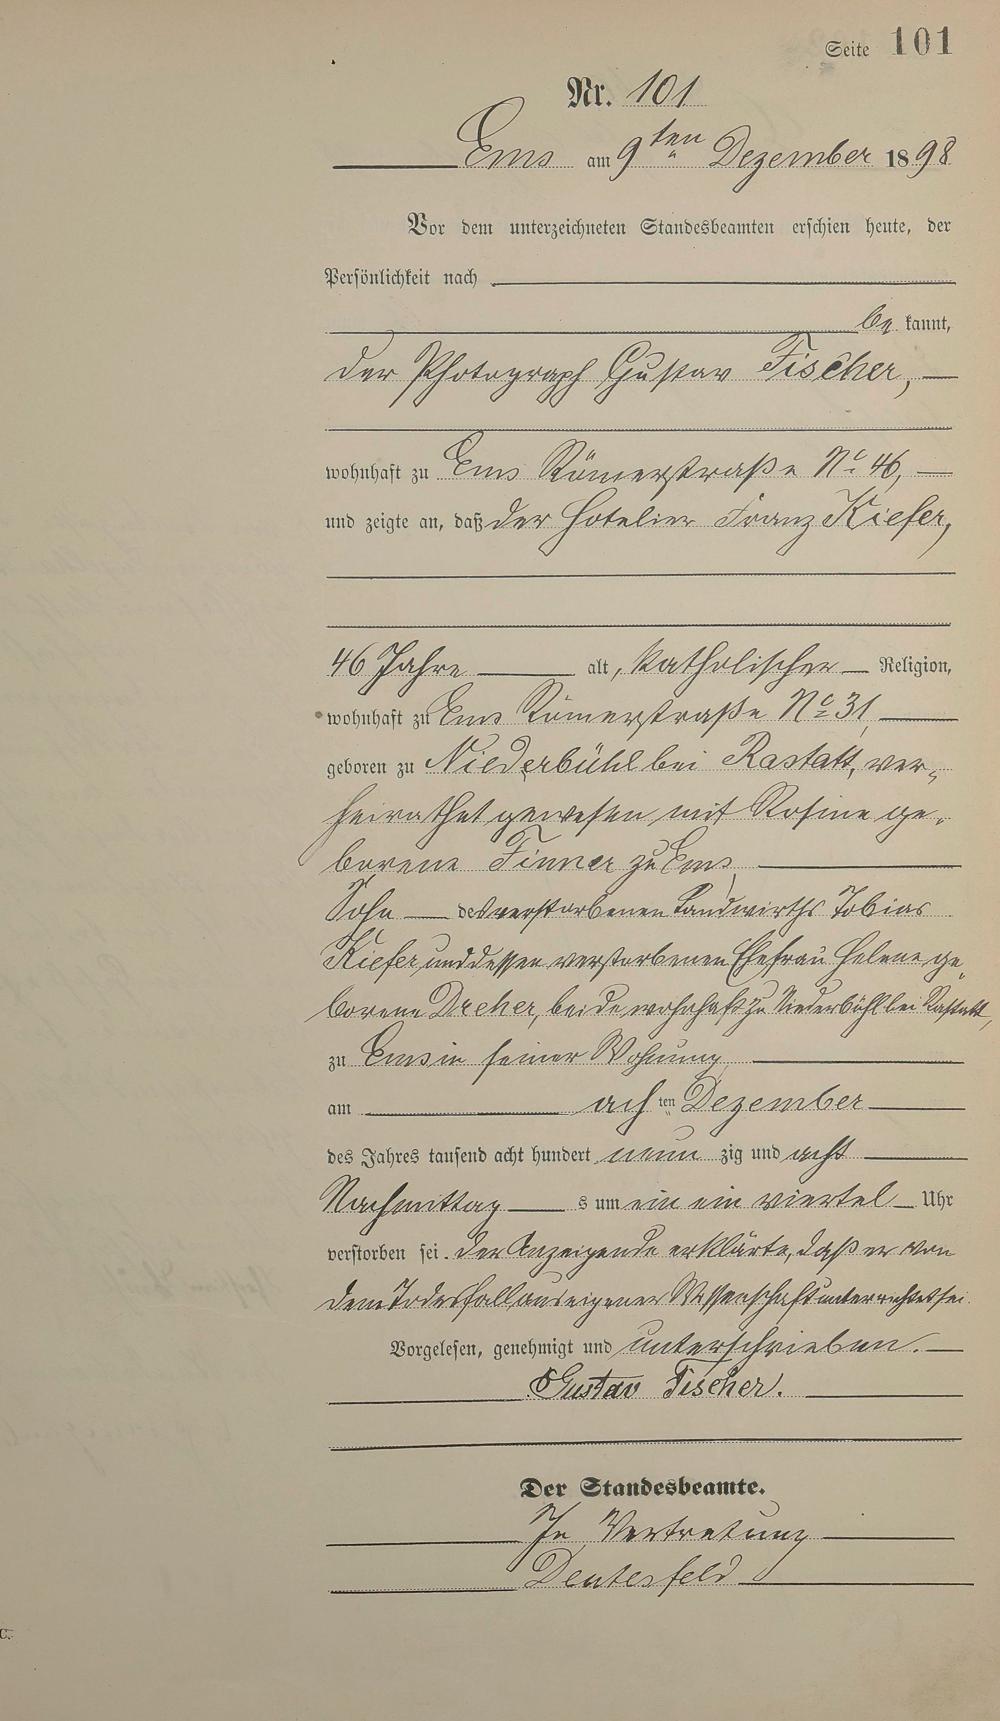 Seite 101
Nr. 101
Ems am 9ten Dezember 1898
Vor dem unterzeichneten Standesbeamten erschien heute, der
Persönlichkeit nach
be kannt,
der Photograph Gustav Fischer,
wohnhaft zu Ems Römerstraße No. 46,
und zeigte an, daß der Hotelier Franz Kiefer,
46 Jahre alt, katholischer Religion,
wohnhaft zu Ems Römerstraße No 31,
geboren zu Niederbühl bei Rastatt, ver-
heirathet gewesen mit Rosine ge-
borene Finner zu Ems,
Sohn des verstorbenen Landwirths Tobias
Kiefer und dessen verstorbenen Ehefrau Helene ge-
borene Dreher, beide wohnhaft zu Niederbühl bei Rastatt,
zu Ems in seiner Wohnung,
am acht ten Dezember
des Jahres tausend acht hundert neun zig und acht
Nachmittag s um ein ein viertel Uhr
verstorben sei. Der Anzeigende erklärte, daß er von
dem Todesfall aus eigener Wissenschaft unterrichtet sei.
Vorgelesen, genehmigt und unterschrieben.
Gustav Fischer.
Der Standesbeamte.
In Vertretung
c.